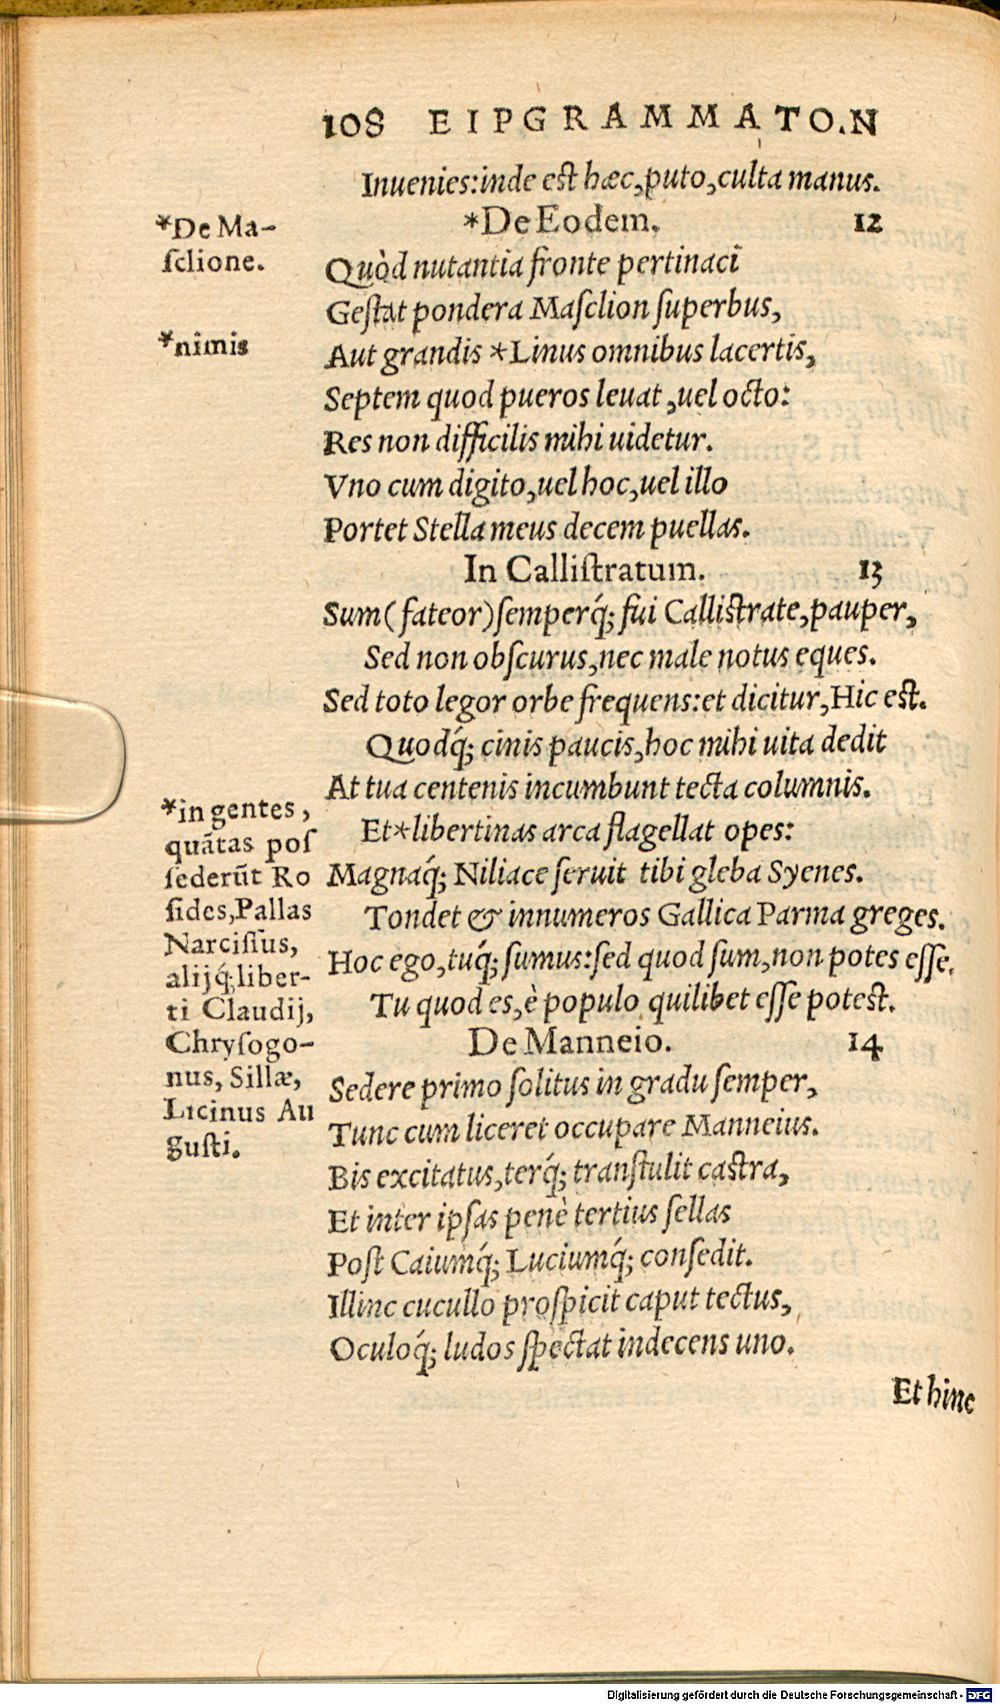 108 EIPGRAMMATO.N
Inuenies:inde est hæc,puto,culta manus.
*De Eodem. 12
*De Ma-
ſclione.
Quòd nutantia fronte pertinaci
Geſtat pondera Maſclion ſuperbus,
*nimis
Aut grandis *Linus omnibus lacertis,
Septem quod pueros leuat,uel octo:
Res non difficilis mihi uidetur.
Vno cum digito,uel hoc,uel illo
Portet Stella meus decem puellas.
In Calliſtratum. 13
Sum(fateor)ſemperq́; fui Calliſtrate,pauper,
Sed non obſcurus,nec male notus eques.
Sed toto legor orbe frequens:et dicitur,Hic eſt.
Quodq́; cinis paucis,hoc mihi uita dedit
At tua centenis incumbunt tecta columnis.
Et*libertinas arca flagellat opes:
Magnaq́; Niliace ſeruit tibi gleba Syenes.
Tondet & innumeros Gallica Parma greges.
Hoc ego,tuq́; ſumus:ſed quod ſum,non potes eſſe.
Tu quod es,è populo quilibet eſſe poteſt.
*in gentes,
quātas poſ
ſederūt Ro
ſides,Pallas
Narciſſus,
alijq́;liber-
ti Claudij,
Chryſogo-
nus, Sillæ,
Licinus Au
guſti.
De Manneio. 14
Sedere primo ſolitus in gradu ſemper,
Tunc cum liceret occupare Manneius.
Bis excitatus,terq́; tranſtulit caſtra,
Et inter ipſas penè tertius ſellas
Poſt Caiumq́; Luciumq́; conſedit.
Illinc cucullo proſpicit caput tectus,
Oculoq́; ludos ſpectat indecens uno.
Et hinc
Digitalisierung gefördert durch die Deutsche Forschungsgemeinschaft - DFG